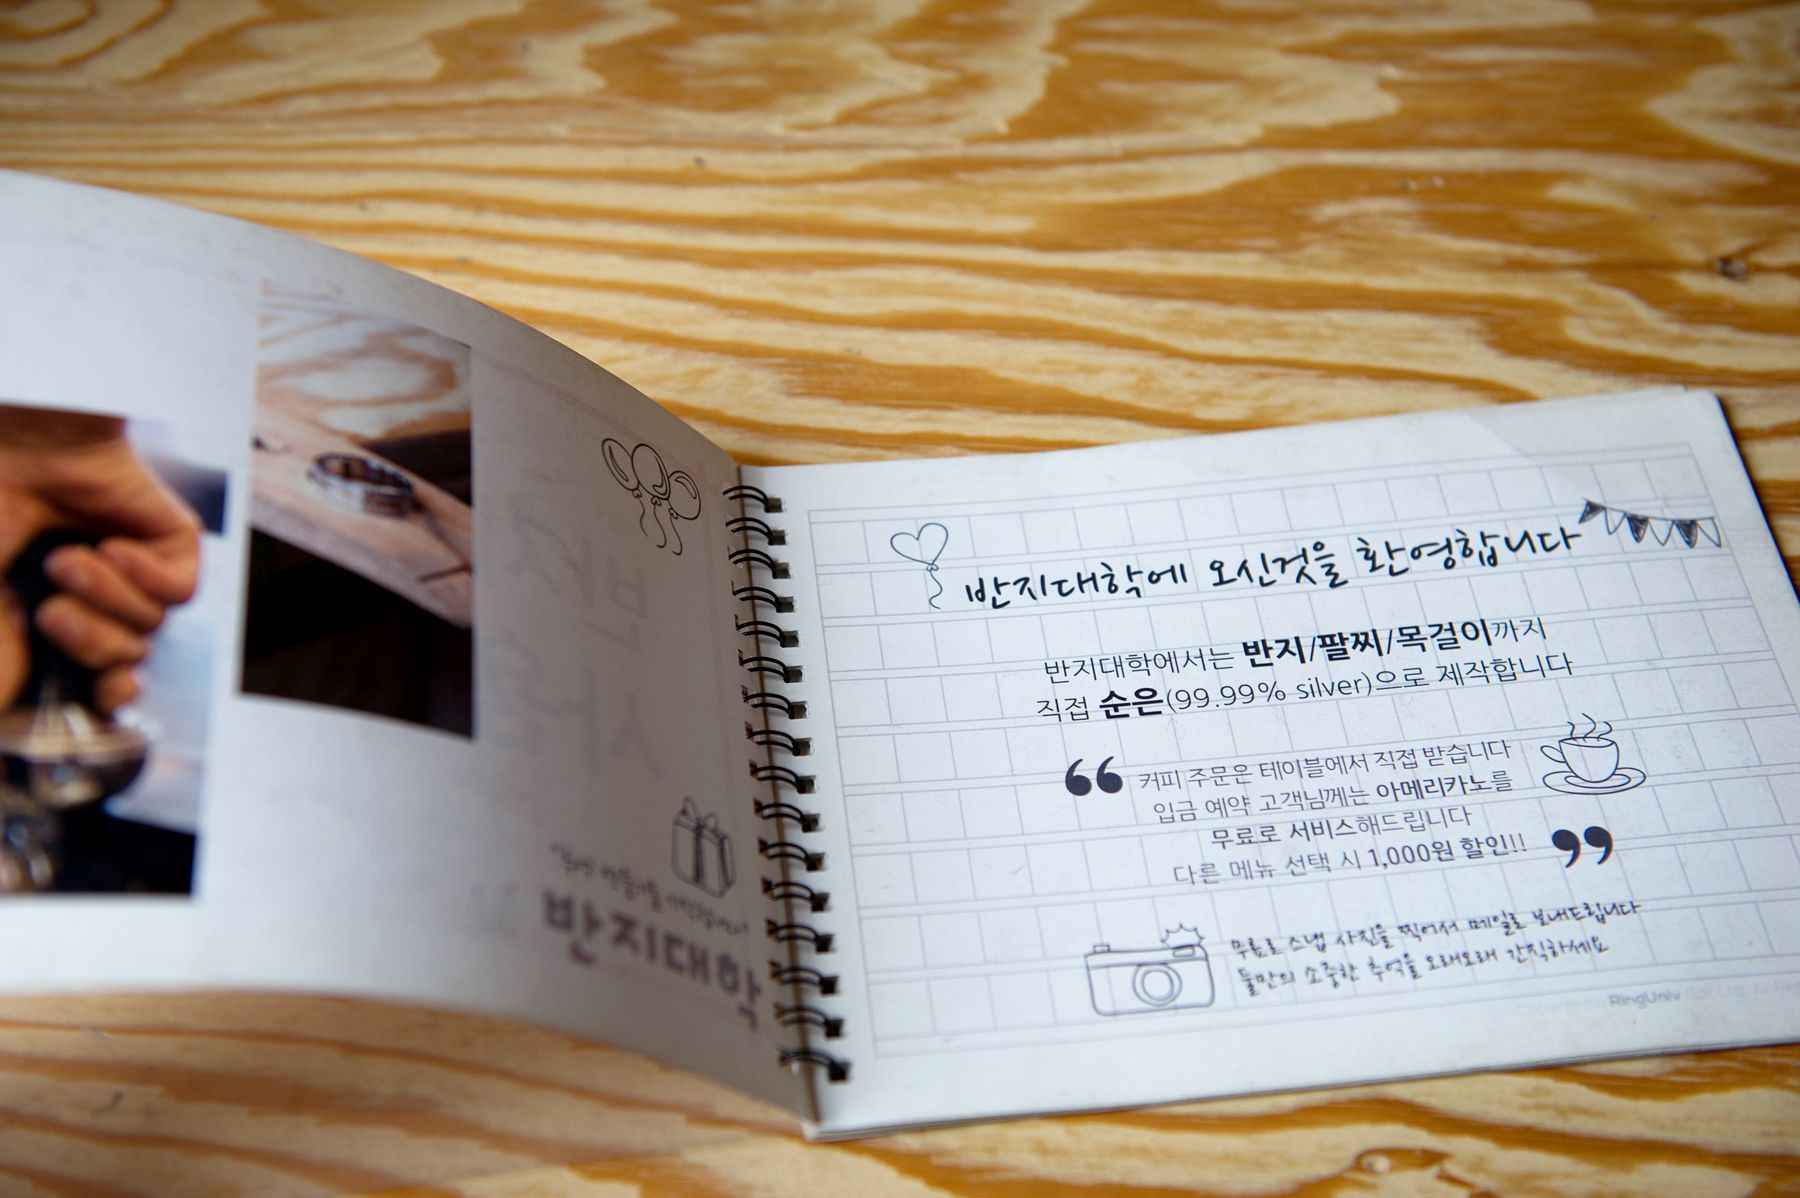 반지대학
반지대학에 오신것을 환영합니다
반지대학에서는 반지/팔찌/목걸이까지
직접 순은(99.99% silver)으로 제작합니다
“ 커피 주문은 테이블에서 직접 받습니다
입금 예약 고객님께는 아메리카노를
무료로 서비스해드립니다
다른 메뉴 선택 시 1,000원 할인!! ”
무료로 스냅 사진을 찍어서 메일로 보내드립니다
둘만의 소중한 추억을 오래오래 간직하세요
RingUniv